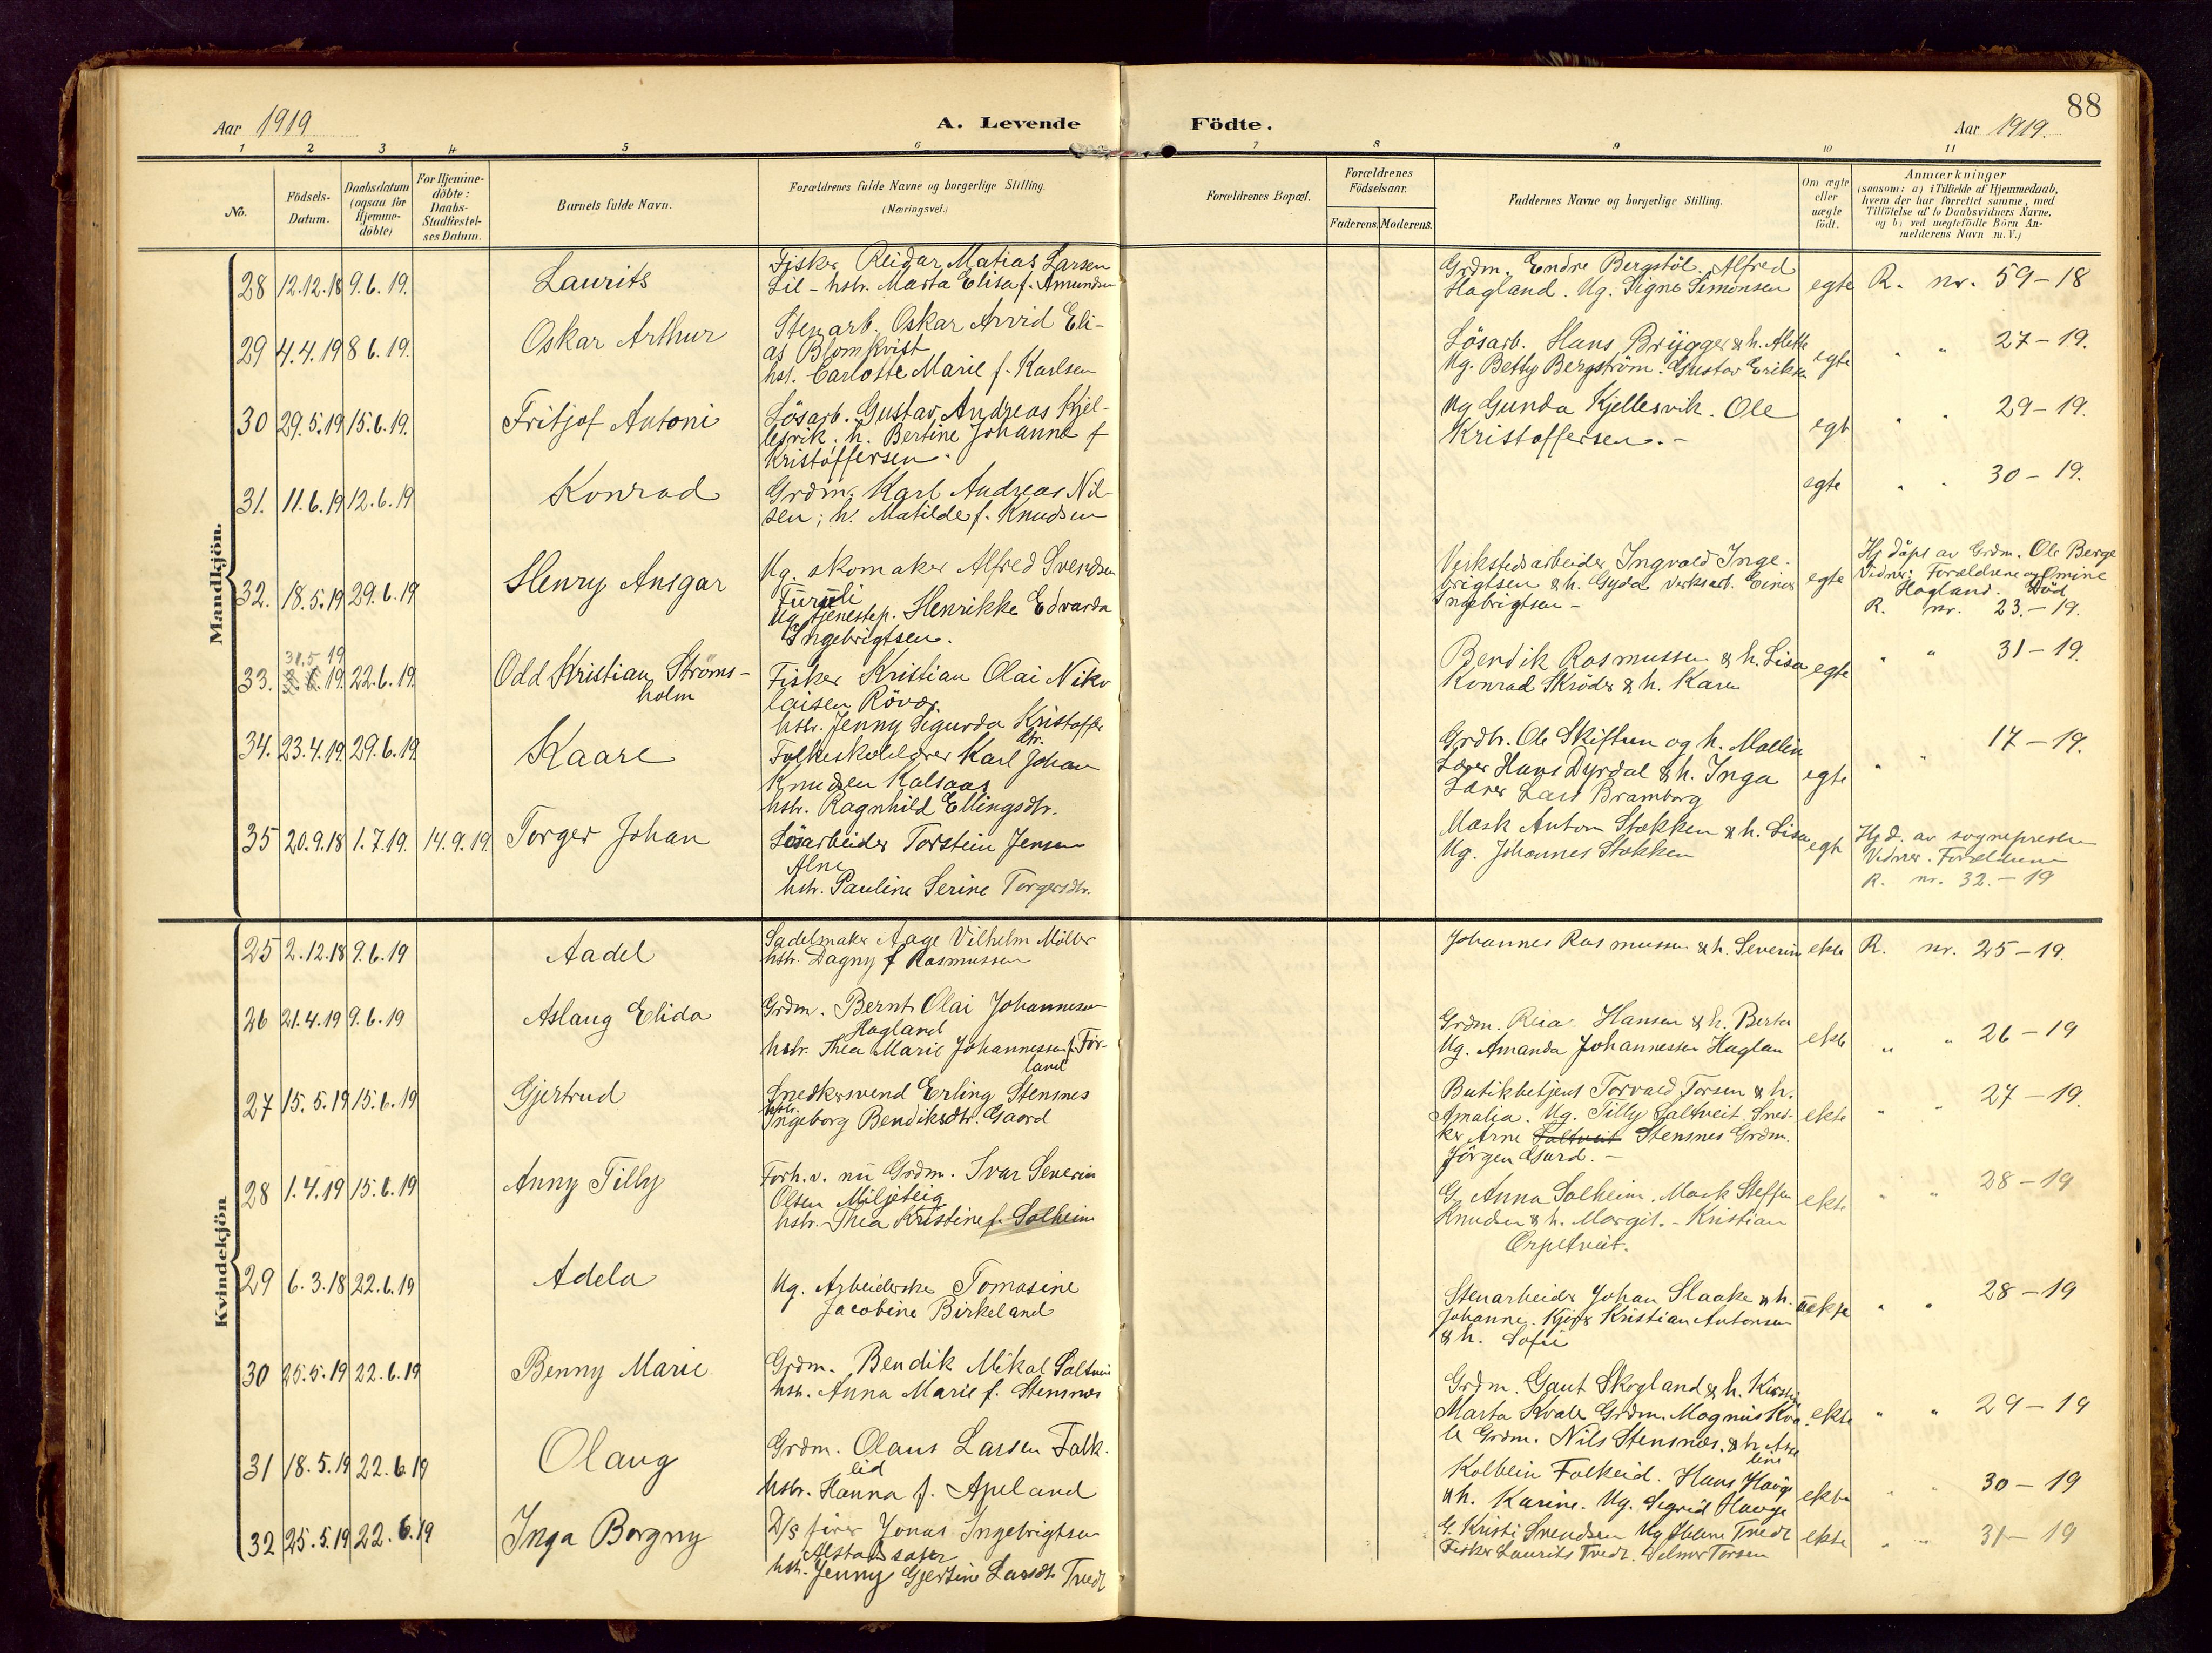 88
Aar 1919
A. Levende Födte.
Aar 1919.
1 2 3 4 5 6 7 8 9 10 11
No.
Födsels-
Datum.
Daabsdatum
(ogsaa for
Hjemme-
döbte)
For Hjemme-
döbte:
Daabs-
Stadfæstel-
ses Datum.
Barnets fulde Navn.
Forældrenes fulde Navne og borgerlige Stilling.
(Næringsvei.)
Forældrenes Bopæl.
Forældrenes
Födselsaar.
Faderens. Moderens.
Faddernes Navne og borgerlige Stilling.
Om ægte
eller
uægte
födt.
Anmærkninger
(saasom: a) i Tilfælde af Hjemmedaab,
hvem der har forrettet samme, med
Tilföielse af to Daabsvidners Navne.
og b) ved uægtefödte Börn An-
melderens Navn m. V.)
Mandkjön.
28 12.12.18 9.6.19. Laurits
Fisker Reidar Matias Larsen
Lil - hstr. Marta Elisa f. Amundsen
Grdm. Endre Bergstöl. Alfred
Hagland. Ug. Signe Simonsen
egte R. nr. 59-18
29 4.4.19 8 6.19. Oskar Arthur
Stenarb. Oskar Arvid Eli-
as Blomkvist
hst. Carlotte Marie f. Karlsen
Lösarb. Hans Brygger & h. Alette
Ug. Betty Bergström. Gustav Eriksen
egte " " 27-19.
30 29.5.19 15.6.19. Fritjof Antoni
Lösarb. Gustav Andreas Kjel-
lesvik. h. Bertine Johanne f
Kristoffersen.
Ug Gunda Kjellesvik. Ole
Kristoffersen. -
egt " " 29-19.
31. 11.6.19 12.6.19 Konrad
Grdm. Karl Andreas Nil-
sen; h. Matilde f. Knudsen
egte " " 30-19.
32. 18.5.19 29.6.19 Henry Ansgar
Ug. skomaker Alfred Svendsen
Furuli
Ug tjenestep. Henrikke Edvarda
Ingebrigtsen.
Verkstedsarbeider Ingvald Inge-
brigtsen & h. Gyda verksarb. Einar
Ingebrigtsen -
egte
Hj döpt av Grdm. Ole Berge
Vidner: Forældrene og Omine
Hagland. Död
R. nr. 23.-19.
33. 31.5 19 22.6.19. Odd Kristian Ströms-
holm
Fisker Kristian Olai Niko
laisen Rövær.
hstr. Jenny Sigurda Kristoffer
dtr.
Bendik Rasmussen & h. Lisa
Konrad Skröder & h. Karen
egte " " 31-19.
34. 23.4.19. 29.6.19. Kaare
Folkeskolelærer Karl Johan
Knudsen Kalsaas
hstr. Ragnhild Ellingsdtr.
Grdbr. Ole Skiftun og h. Mallin
Lærer Hans Dyrdal & h. Inga
Lærer Lars Bramborg
egte " " 17-19.
35 20.9.18 1.7.19. 14.9.19. Torger Johan
Lösarbeider Torstein Jensen
Alne
hstr. Pauline Serine Torgersdtr.
Mask Anton Stokken & h. Lisa
Ug. Johannes Stokken
egte
Hj d. av sognepresten
Vidner. Forældrene
R. nr. 32.-19
Kvindekjön
25 2.12.18 9.6.19 Aadel
Sadelmaker Aage Vilhelm Möller
hstr. Dagny f Rasmussen
Johannes Rasmussen & h. Severin
ekte R. nr. 25-19.
26 21.4.19 9.6.19 Aslaug Elida
Grdm. Bernt Olai Johannesen
Hagland
hstr. Thea Marie Johannessen f. För-
land
Grdm. Reia. Hansen & h. Berta
Ug. Amanda Johannessen Haglan
ekte " " 26-19
27 15.5.19 15.6.19 Gjertrud
Snedkersvend Erling Stensnes
hstr.
Ingeborg Bendiksdtr. Gaard
Butikbetjent Torvald Torsen & h.
Amalia. Ug. Tilly Saltveit. Sned-
ker Arne Saltveit Stensnes Grdm.
Jörgen Gard. -
ekte " " 27-19.
28 1.4.19 15.6.19 Anny Tilly
Forh.v. nu Grdm. Ivar Severin
Olsen Miljeteig
hstr. Thea Kristine f. Solheim
G. Anna Solheim. Mask Steffen
Knudsen & h. Margit. - Kristian
Ørpetveit.
ekte " " 28-19
29 6.3.18 22.6.19 Adela
Ug. Arbeiderske Tomasine
Jacobine Birkeland
Stenarbeider Johan Slaake & h.
Johanne. Kjörer Kristian Antonsen
& h. Sofie
uekte " " 28-19
30 25.5.19 22.6.19 Benny Marie
Grdm. Bendik Mikal Saltvei
hstr. Anna Marie f. Stensnes
Grdm. Gaut Skogland & h. Kirsti
Marta Kvale Grdm. Magnus Kva-
le Grdm. Nils Stensnæs. & h. Ase
line
ekte " " 29-19
31 18.5.19 22.6.19 Olaug
Grdm. Olaus Larsen Falk-
eid
hstr. Hanna f. Apeland
Kolbein Falkeid. Hans Havge
& h. Karine. Ug. Sigrid Havge
ekte " " 30-19
32 25.5.19 22.6.19 Inga Borgny
D/s förer Jonas Ingebrigtsen
Alstadsæter
hstr. Jenny Gjertine Larsdtr Tvedt
G. Kristi Svendsen Ug Tvedt
Fisker Laurits Tvedt. Torsen
ekte " " 31-19